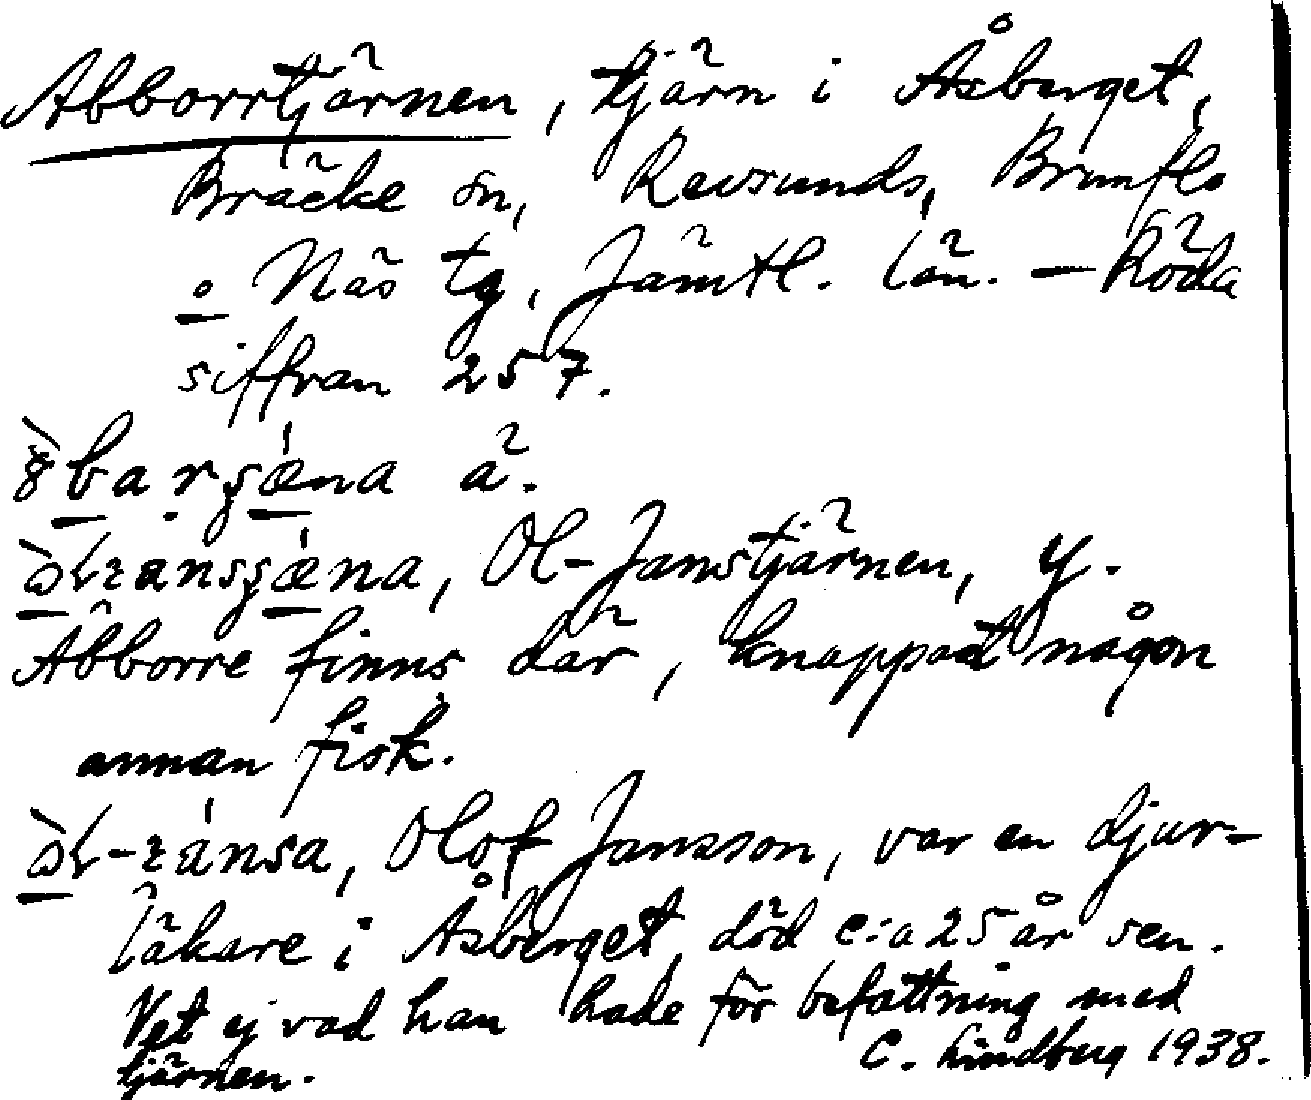 Abborrtjärnen, tjärn i Åsberget,
Bräcke sn, Revsunds, Brunflo
o Näs tg, Jämtl. län. — Röda
siffran 257.
ä.
Ol-Janstjärnen, y.
Abborre finns där, knappast någon
annan fisk.
Olof Jansson, var en djur-
läkare i Åsberget, död c:a 25 år sen.
Vet ej vad han hade för befattning med
tjärnen.
C. Lindberg 1938.